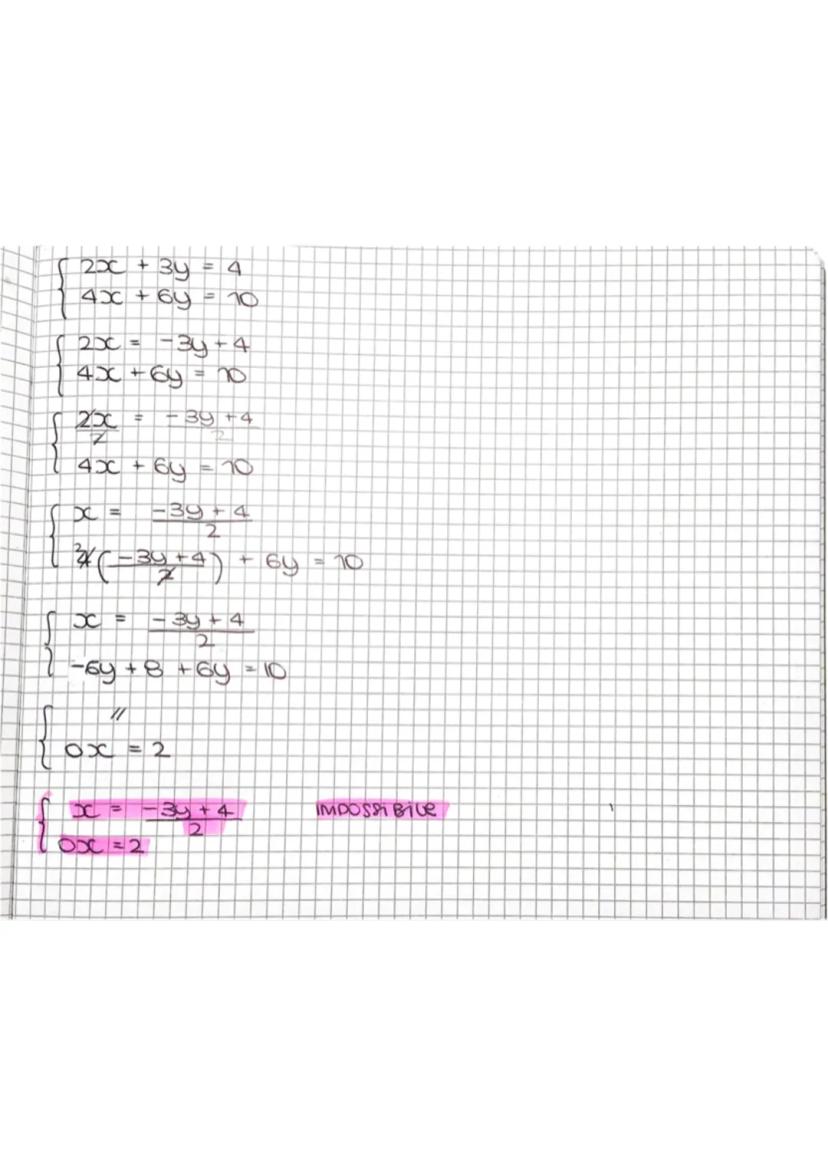 2x + 3y = 4
4x + 6y = 10
2x = -3y + 4
4x + 6y = 10
2x/2 = -3y + 4/2
4x + 6y = 10
x = -3y + 4/2
²4(-3y + 4/2) + 6y = 10
x = -3y + 4/2
-6y + 8 + 6y = 10
//
0x = 2
x = -3y + 4/2 IMPOSSIBILE
0x = 2